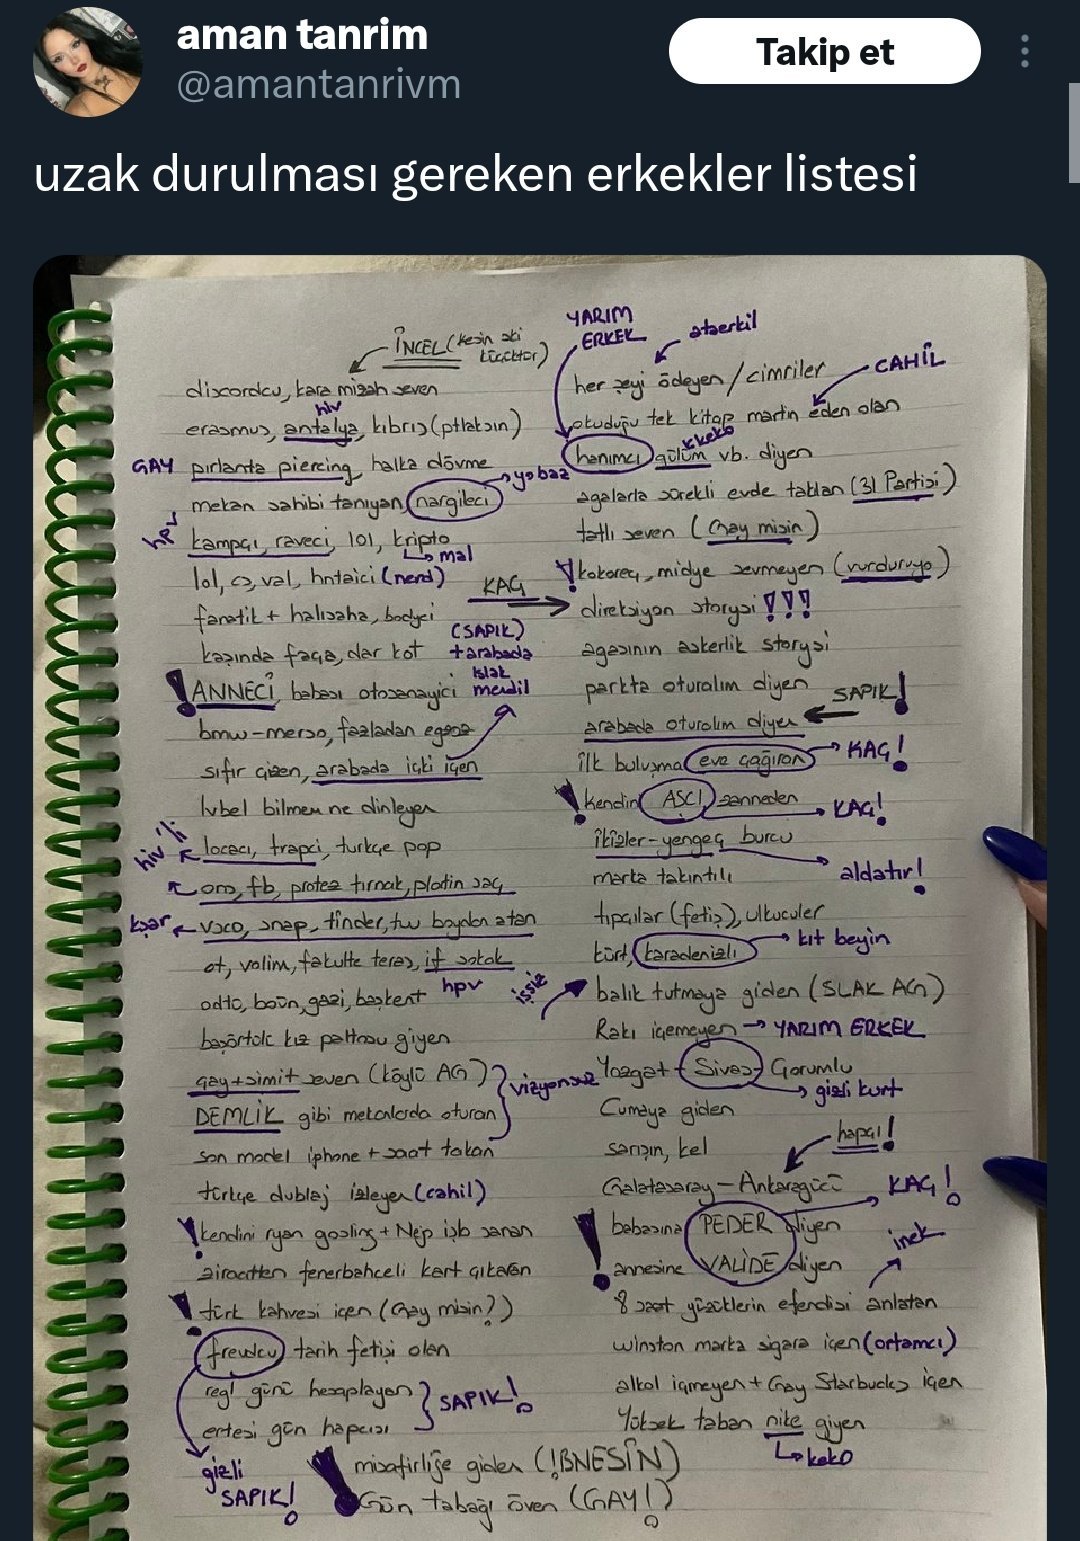 aman tanrim
@amantanrivm
Takip et
uzak durulması gereken erkekler listesi
İNCEL (kesin siki küçüktür)
discordcu, kara mizah seven
hiv
erasmus, antalya, kıbrıs (ptlaksın)
GAY pırlanta piercing, halka dövme
mekan sahibi tanıyan, nargileci
yobaz
hpv
kampçı, raveci, 101, kripto
mal
lol, cs, val, hntaici (nerd)
fanatik + halısaha, bodyci
kaşında faça, dar kot
(SAPIK)
+ arabada
ıslak
mendil
! ANNECİ, babası otosanayici
bmw-merso, fazladan egzoz
sıfır çizen, arabada içki içen
lvbel bilmem ne dinleyen
hiv'li
locacı, trapci, turkçe pop
om, fb, protez tırnak, platin saç
kaşar
vsco, snap, tinder, tw boydan atan
ot, volim, fakulte teras, if sokak
hpv
odtü, boün, gazi, başkent
başörtülü kız paltosu giyen
çay+simit seven (köylü AQ)
DEMLİK gibi mekanlarda oturan
vizyonsuz
son model iphone + saat takan
türkçe dublaj izleyen (cahil)
! kendini ryan gosling + Nejo işb sanan
ziraatten fenerbahceli kart çıkaran
! türk kahvesi içen (Gay misin?)
freudcu, tarih fetişi olan
regl günü hesaplayan
ertesi gün hapcısı
SAPIK!
gizli
SAPIK!
! misafirliğe giden (İBNESİN)
Gün tabağı öven (GAY!)
YARIM
ERKEK
ataerkil
her şeyi ödeyen / cimriler
CAHİL
okuduğu tek kitap martin eden olan
keko
hanımcı, gülüm vb. diyen
agalarla sürekli evde takılan (31 Partisi)
tatlı seven (Gay misin)
! kokoreç, midye sevmeyen (vurduruyo)
KAÇ
direksiyon storysi !!!
agasının askerlik storysi
parkta oturalım diyen
SAPIK!
arabada oturalım diyen
ilk buluşma eve çağıran
KAÇ!
! kendin AŞÇI zanneden
KAÇ!
ikizler-yengeç burcu
aldatır!
marka takıntılı
tıpçılar (fetiş), ulkuculer
kürt, karadenizli
kıt beyin
işsiz
balık tutmaya giden (SLAK AQ)
Rakı içemeyen → YARIM ERKEK
Yozgat + Sivas + Çorumlu
gizli kürt
Cumaya giden
sarışın, kel
hapçı!
Galatasaray - Ankaragücü
KAÇ!
! babasına PEDER diyen
annesine VALİDE diyen
inek
8 saat yüzüklerin efendisi anlatan
winston marka sigara içen (ortamcı)
alkol içmeyen + Gay Starbucks içen
Yüksek taban nike giyen
keko